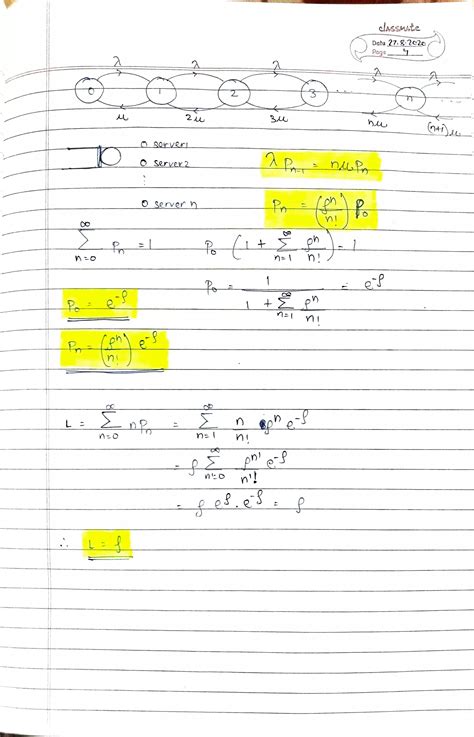 classmate
Date 27.8.2020
Page 4
λ λ λ λ λ
0 1 2 3 ... n
μ 2μ 3μ nμ (n+1)μ
0 server1
0 server2
⋮
0 server n
λ P_{n-1} = nμP_n
P_n = (ρ^n/n!) P_0
∑_{n=0}^{∞} P_n = 1 P_0 (1 + ∑_{n=1}^{∞} ρ^n/n!) = 1
P_0 = 1/(1 + ∑_{n=1}^{∞} ρ^n/n!) = e^{-ρ}
P_0 = e^{-ρ}
P_n = (ρ^n/n!) e^{-ρ}
L = ∑_{n=0}^{∞} nP_n = ∑_{n=1}^{∞} n/n! ρ^n e^{-ρ}
= ρ ∑_{n'=0}^{∞} ρ^{n'}/n'! e^{-ρ}
= ρ e^{ρ} . e^{-ρ} = ρ
∴ L = ρ